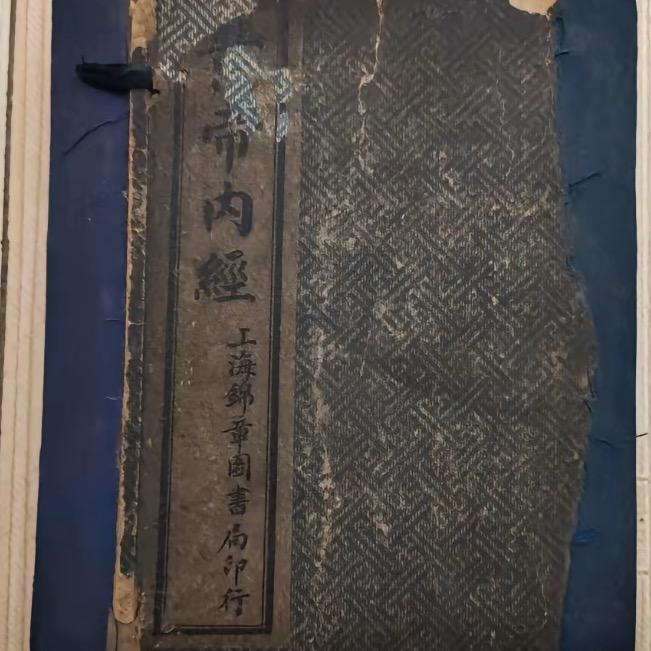 帝内經
上海錦章圖書局印行